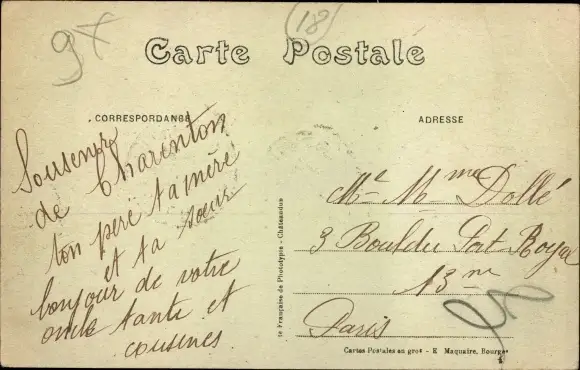 97
18
Carte Postale
CORRESPORDANCE
ADRESSE
Souvenir
de Charenton
ton père ta mère
et ta sœur
bonjour de votre
oncle tante et
cousines
Me Mme Dollé
3 Bouldu Port Royal
13me
Paris
ie Française de Phototypie - Châteaudun
Cartes Postales en gros - E Maquaire, Bourges